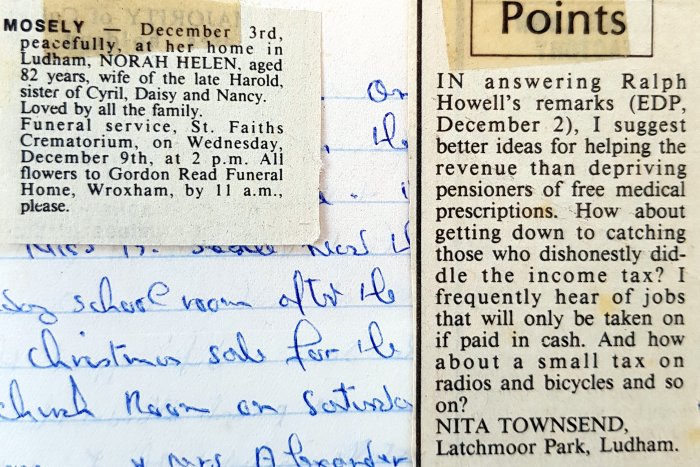 MOSELY — December 3rd,
peacefully, at her home in
Ludham, NORAH HELEN, aged
82 years, wife of the late Harold,
sister of Cyril, Daisy and Nancy.
Loved by all the family.
Funeral service, St. Faiths
Crematorium, on Wednesday,
December 9th, at 2 p.m. All
flowers to Gordon Read Funeral
Home, Wroxham, by 11 a.m.,
please.
on
the
school room after the
Christmas sale for the
Church Room on Saturda
Mrs Alexander
Points
IN answering Ralph
Howell's remarks (EDP,
December 2), I suggest
better ideas for helping the
revenue than depriving
pensioners of free medical
prescriptions. How about
getting down to catching
those who dishonestly did-
dle the income tax? I
frequently hear of jobs
that will only be taken on
if paid in cash. And how
about a small tax on
radios and bicycles and so
on?
NITA TOWNSEND,
Latchmoor Park, Ludham.